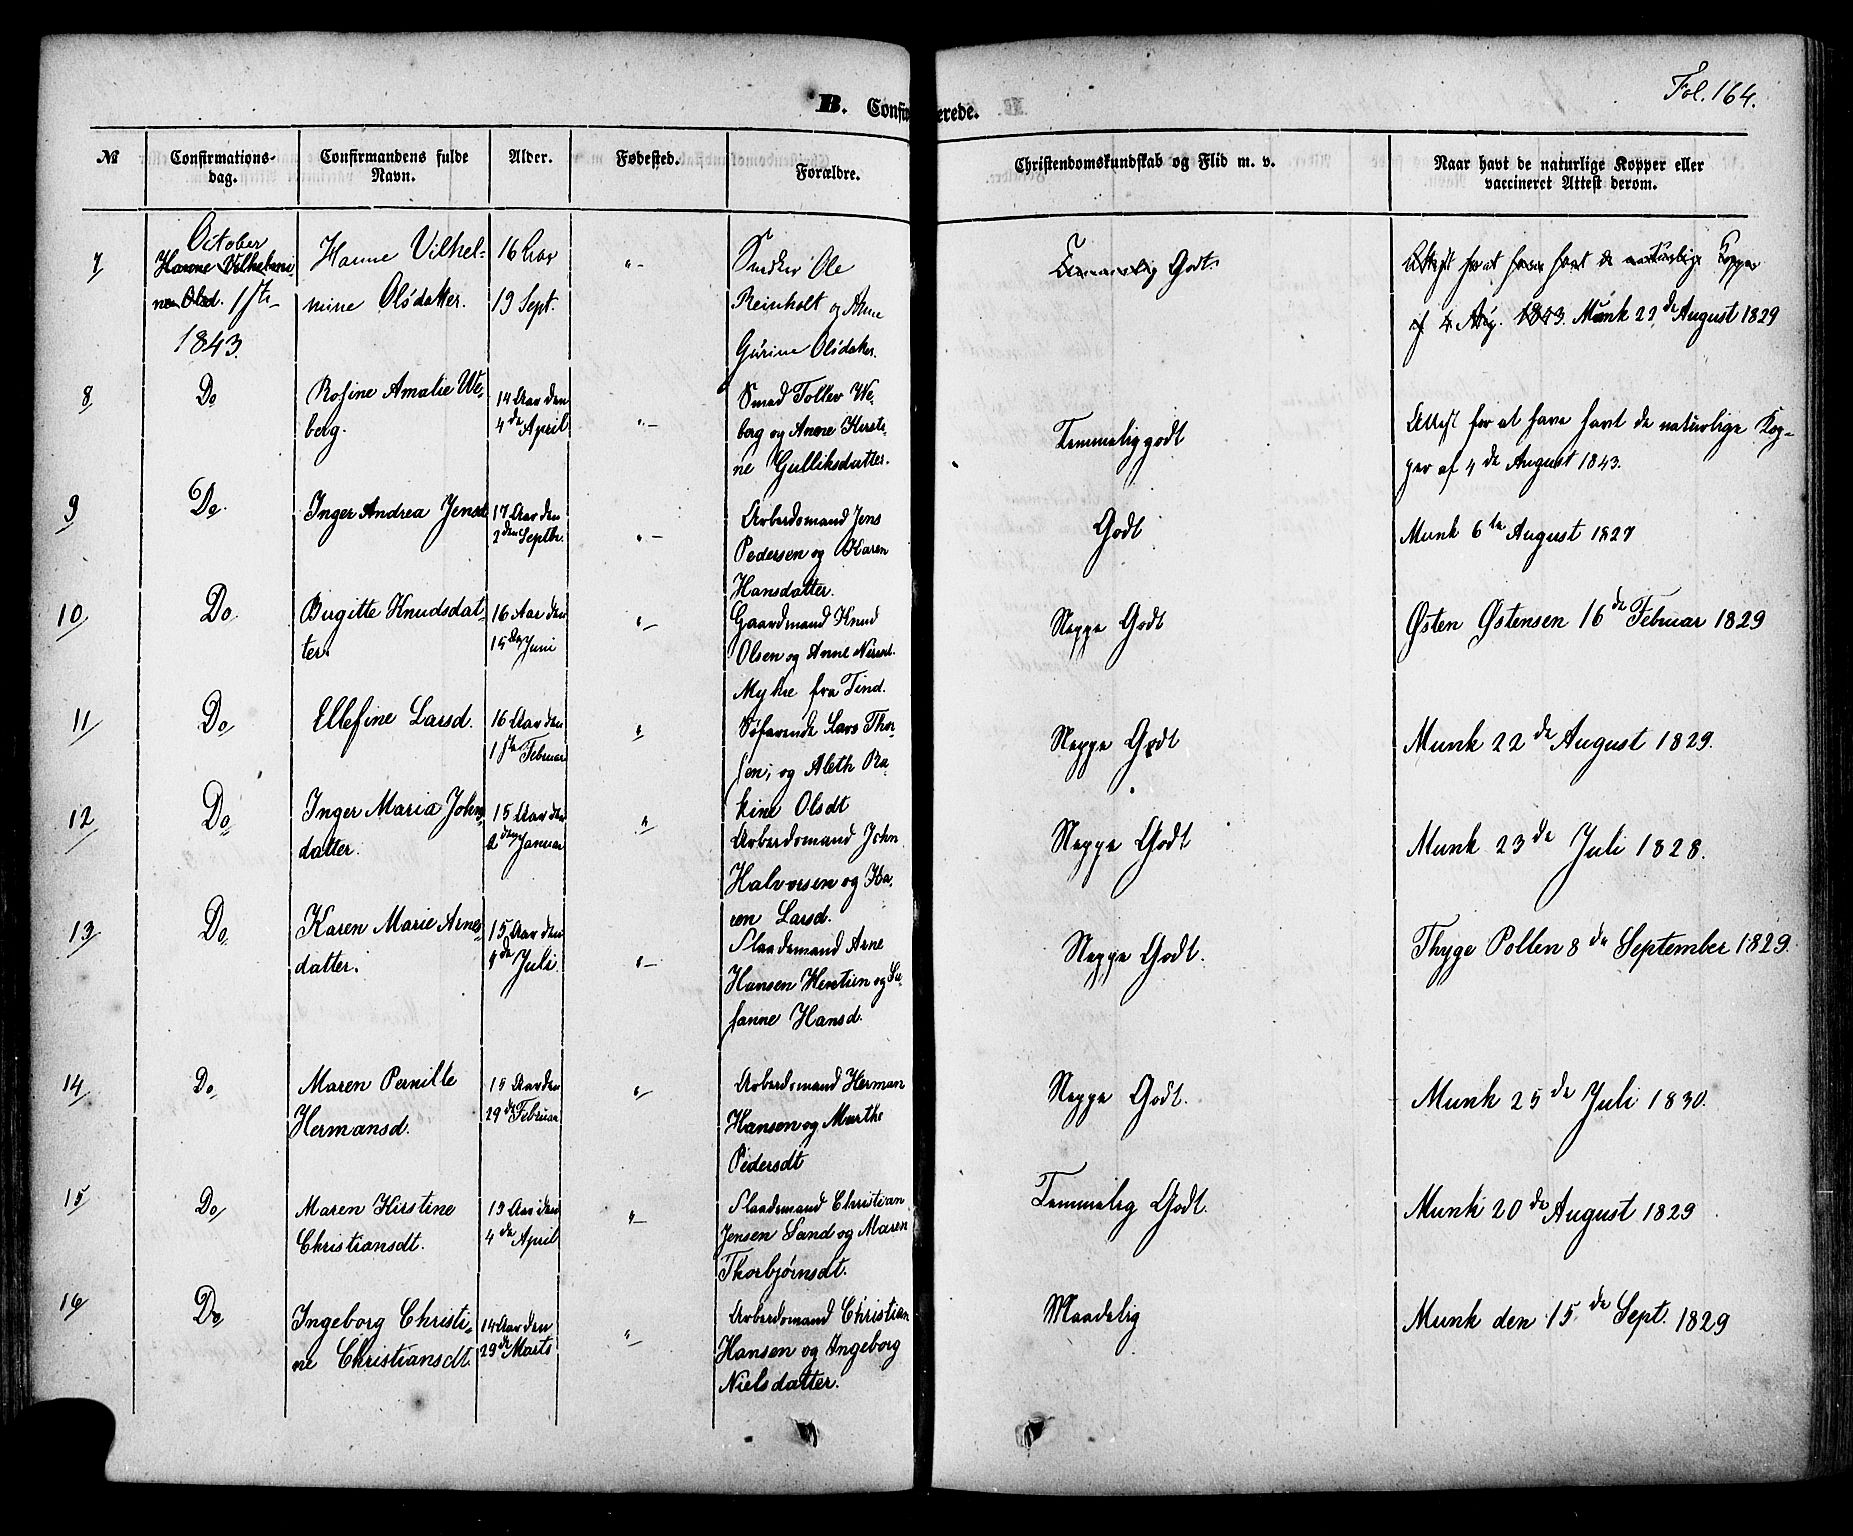 Fol. 164.
B. Confirmerede.
№
Confirmations-
dag.
Confirmandens fulde
Navn.
Alder.
Fødested.
Forældre.
Christendomskundskab og Flid m. v.
Naar havt de naturlige Kopper eller
vaccineret Attest derom.
7
October
Hanne Vilhelmi
ne Olsd. 1ste
1843.
Hanne Vilhel-
mine Olsdatter.
16 Aar
19 Sept.
"-
Snedker Ole
Reinholt og Anne
Gurine Olsdatter.
Temmelig Godt
Attest for at have havt de naturlige Kopper
af 4 Aug. 1843. Munk 22de August 1829
8
Do
Rosine Amalie We-
berg.
14 Aar den
4de April
"-
Smed Tollev We-
berg og Anne Kirsti-
ne Gulliksdatter.
Temmelig godt
Attest for at have havt de naturlige Kop-
per af 4de August 1843.
9
Do.
Inger Andrea Jensd
17 Aar den
2den Septbr.
"-
Arbeidsmand Jens
Pedersen og Karen
Hansdatter.
Godt
Munk 6te August 1827
10
Do
Birgitte Knudsdat-
ter.
16 Aar den
15de Juni
"-
Gaardmand Knud
Olsen og Anne
Mykre fra Tind.
Neppe Godt
Østen Østensen 16de Februar 1829
11
Do
Ellefine Larsd.
16 Aar den
1ste Februar
"
Søfarende Lars Thor-
sen, og Aleth Ra-
kine Olsdt
Neppe Godt
Munk 22de August 1829.
12
Do
Inger Maria Johns-
datter.
15 Aar den
2den Januar
"
Arbeidsmand John
Halvorsen og Ka-
ren Larsd.
Neppe Godt
Munk 23de Juli 1828.
13
Do
Karen Marie Arnes-
datter.
15 Aar den
4de Juli
"-
Pladsmand Arne
Hansen Hentien og Su-
sanne Hansd.
Neppe Godt.
Thyge Pollen 8de September 1829.
14
Do.
Maren Pernille
Hermansd.
15 Aar den
29de Februar
"
Arbeidsmand Herman
Hansen og Marthe
Pedersdt
Neppe Godt.
Munk 25de Juli 1830.
15
Do
Maren Kirstine
Christiansdt.
15 Aar den
4de April
"-
Pladsmand Christian
Jensen Sand og Maren
Thorbjørnsdt.
Temmelig Godt.
Munk 20de August 1829
16
Do
Ingeborg Christi-
ne Christiansdt.
14 Aar den
29de Marts
"
Arbeidsmand Christian
Hansen og Ingeborg
Nielsdatter.
Maadelig
Munk den 15de Sept. 1829